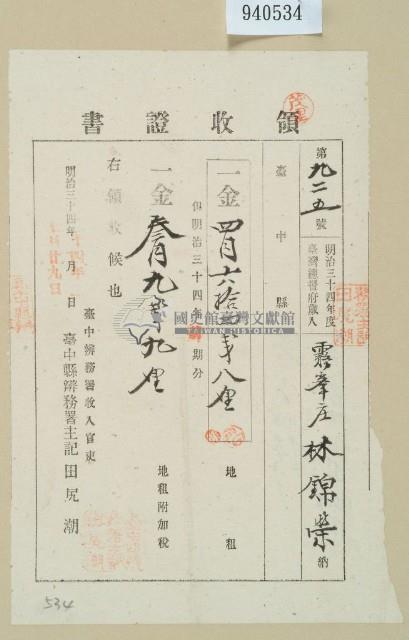 940534
領收證書
第九二五號
明治三十四年度
臺灣總督府歲入
霧峯庄 林錦榮 納
臺中縣
一金 四円六拾弍戔八厘 地租
但明治三十四年 期分
一金 叁円九 九厘 地租附加稅
右領收候也
明治三十四年 月 日
臺中辨務署收入官吏
臺中縣辨務署主記 田尻潮
國史館臺灣文獻館
TAIWAN HISTORICA
534